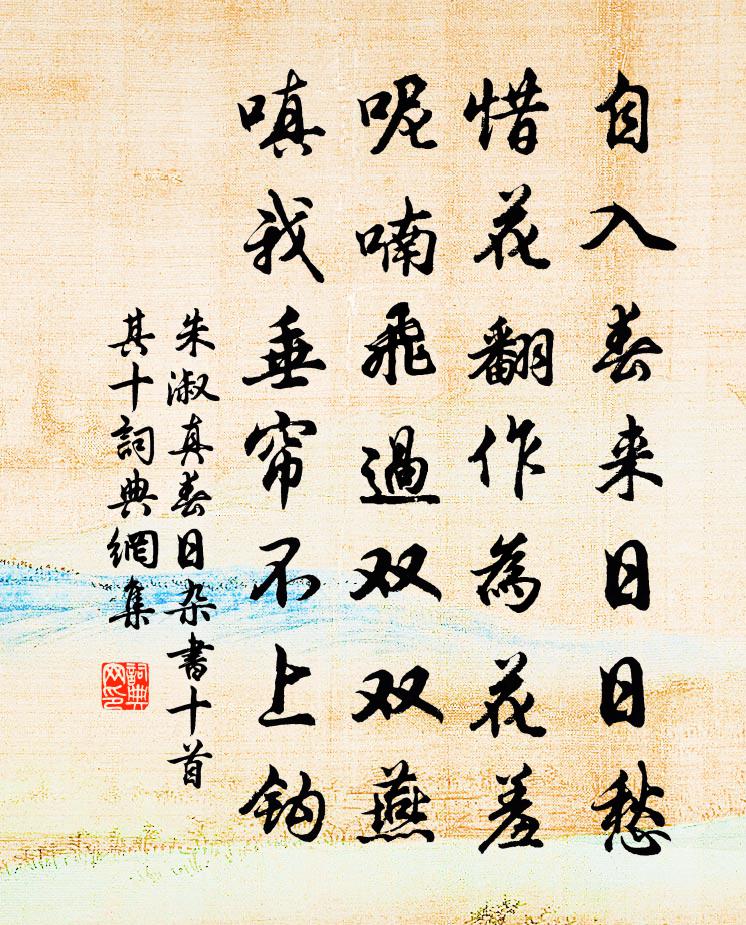 自入春来日日愁
惜花翻作為花羞
呢喃飛過双双燕
嗔我垂帘不上鈎
朱淑真春日杂書十首
其十詞典網集
詞典網印